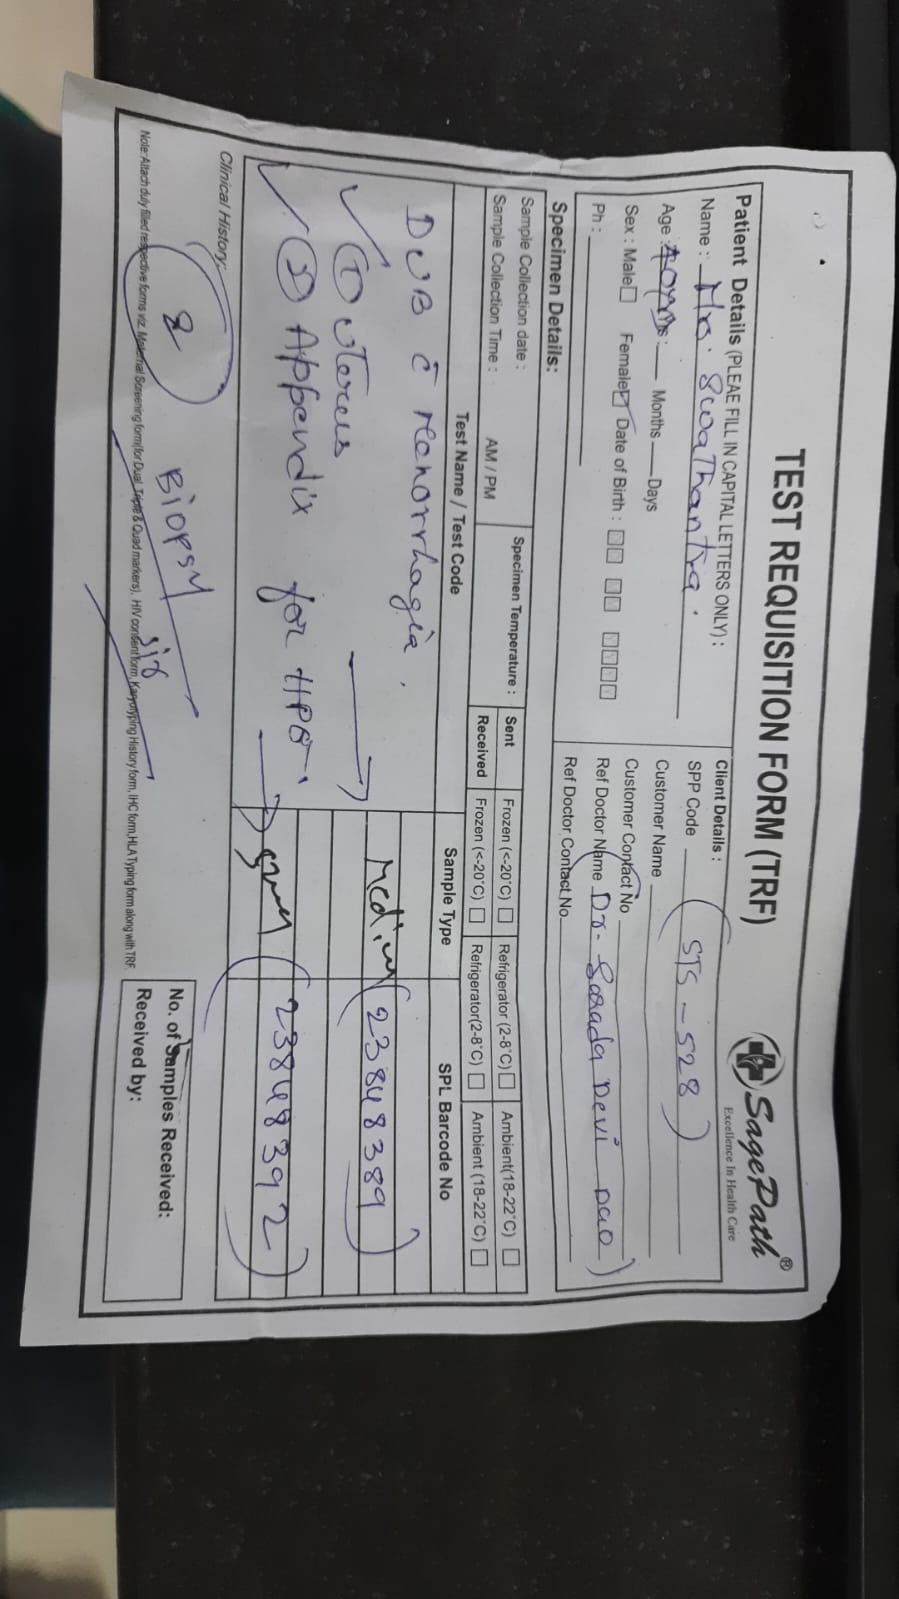 TEST REQUISITION FORM (TRF)
SagePath®
Excellence In Health Care
Patient Details (PLEAE FILL IN CAPITAL LETTERS ONLY) :
Name : Mrs. SwaThantra.
Age : 40yrs : Months Days
Sex : Male Female Date of Birth :
Ph :
Client Details :
SPP Code (STS - 528)
Customer Name
Customer Contact No
Ref Doctor Name Dr. Sarada Devi
Ref Doctor Contact No
Specimen Details:
Sample Collection date :
Sample Collection Time : AM / PM
Specimen Temperature :
Sent Frozen (<-20°C) Refrigerator (2-8°C) Ambient(18-22°C)
Received Frozen (<-20°C) Refrigerator(2-8°C) Ambient (18-22°C)
Test Name / Test Code Sample Type SPL Barcode No
DUB c̄ Menorrhagia.
① Uterus → Medium (23848389)
② Appendix for HPE → (23848392)
Clinical History:
2 BIOPSY
Note: Attach duly filled respective forms viz. Maternal Screening form(for Dual, Triple & Quad markers), HIV consent form, Karyotyping History form, IHC form,HLA Typing form along with TRF.
No. of Samples Received:
Received by: